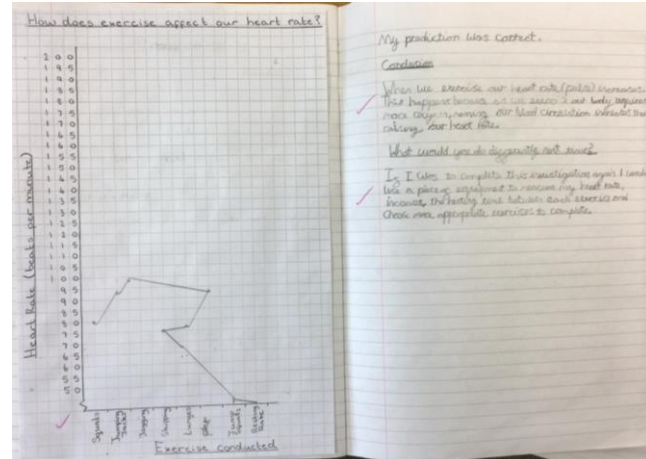 How does exercise affect our heart rate?
200
195
190
185
180
175
170
165
160
155
150
145
140
135
130
125
120
115
110
105
100
95
90
85
80
75
70
65
60
55
50
Heart Rate (beats per minute)
Squats
Jumping
Jacks
Jogging
Lunges
Resting
Rate
Exercise conducted
My prediction was correct.
Conclusion
When we exercise our heart rate (pulse) increases.
This happens because as we exercise our body requires
more oxygen, meaning our blood circulation increases
our heart rate.
What would you do differently next time?
If I was to complete this investigation again I would
use a piece of equipment to measure my heart rate,
increase the resting time between each exercise and
more appropriate exercises to complete.